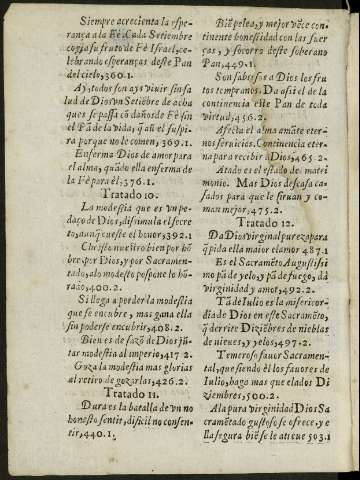 Siempre acrecienta la espe-
rança a la Fè. Cada Setiembre
cogia su fruto de Fè Israel, ce-
lebrando esperanças deste Pan
del cielo, 360.1.
Ay, todos son ays vivir sin sa
lud de Dios un Setiẽbre de acha
ques se passa cõ daños de Fè sin
el Pã de la vida, q̃ aũ el suspi-
ra porque no le comen, 369.1.
Enferma Dios de amor para
el alma, quãdo ella enferma de
la Fè para èl, 376.1.
Tratado 10.
La modestia que es vn pe-
daço de Dios, disimula el secre
to, aunq̃ cueste el honor, 392.1
Christo nuestro bien por hõ
bre por Dios, y por Sacramen-
tado, alo modesto pospone lo hõ-
rado, 400.2.
Si llega a perder la modestia
que se encubre, mas gana ella
sin poderse encubrir, 408.2.
Bien es de sazõ de Dios jũ-
tar modestia al imperio, 417 2.
Goza la modestia mas glorias
al retiro de gozarlas, 426.2.
Tratado 11.
Dura es la batalla de vn no
honesto sentir, dificil no consen-
tir, 440.1.
Biẽ pelea, y mejor vẽce con-
tinente honestidad con las fuer
ças, y socorro deste soberano
Pan, 449.1.
Son sabrosos a Dios los fru
tos tempranos. Da assi el de la
continencia este Pan de toda
virtud, 456.2.
Afecta el alma amãte eter-
nos servicios. Continencia eter-
na para recibir a Dios, 465.2.
Atado es el estado de matri
monio. Mas Dios descasa ca-
sados para que le sirvan y co-
man mejor, 475.2.
Tratado 12.
Da Dios virginal pureza para
q̃ pida ella maior clamor 487.1
Es el Sacramẽto Augustissi
mo pã de yelo, y pã de fuego, dà
virginidad y amor, 492.2.
Tã de Iulio es la misericor-
dia de Dios en este Sacramẽto,
q̃ derrite Diziẽbres de nieblas
de nieves, y yelos, 497.2.
Temeroso favor Sacramen-
tal, que siendo èl los favores de
Iulio, haga mas que elados Di
ziembres, 500.2.
A la pura virginidad Dios Sa
cramẽtado gustoso se ofrece, y e
lla segura biẽ se le atreue 503.1